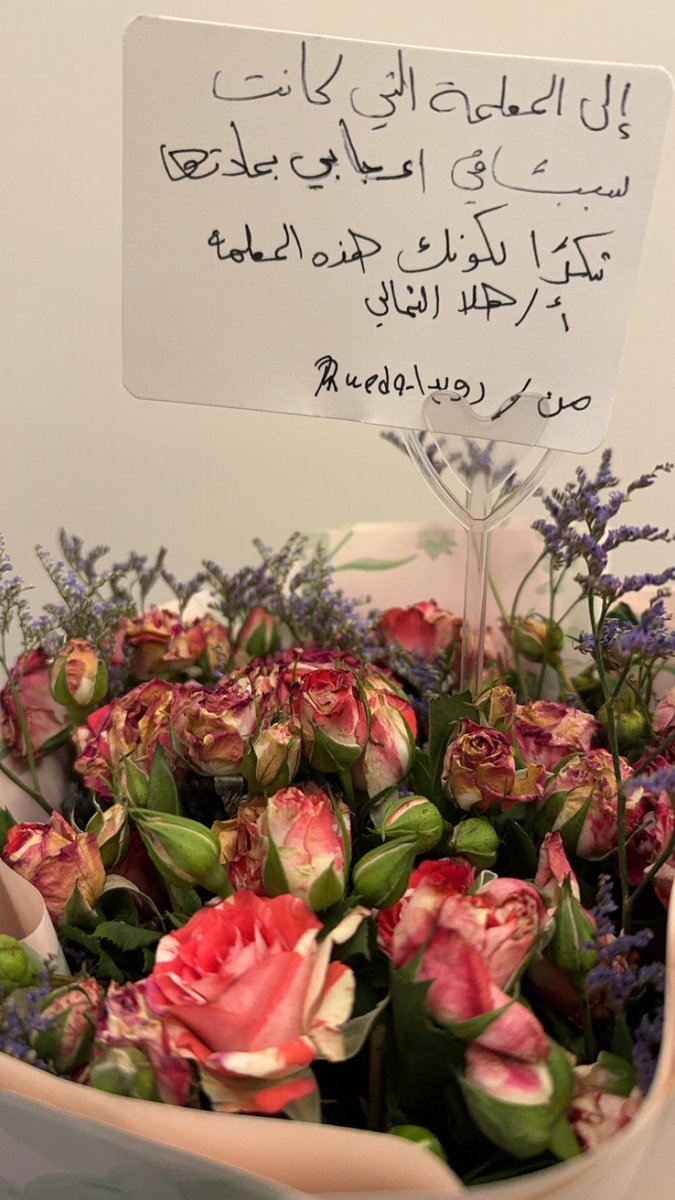 إلى المعلمة التي كانت
سببًا في اعجابي بمادتها
شكرًا لكونك هذه المعلمة
أ/ هلا الثمالي
من / رويدا-Rueda